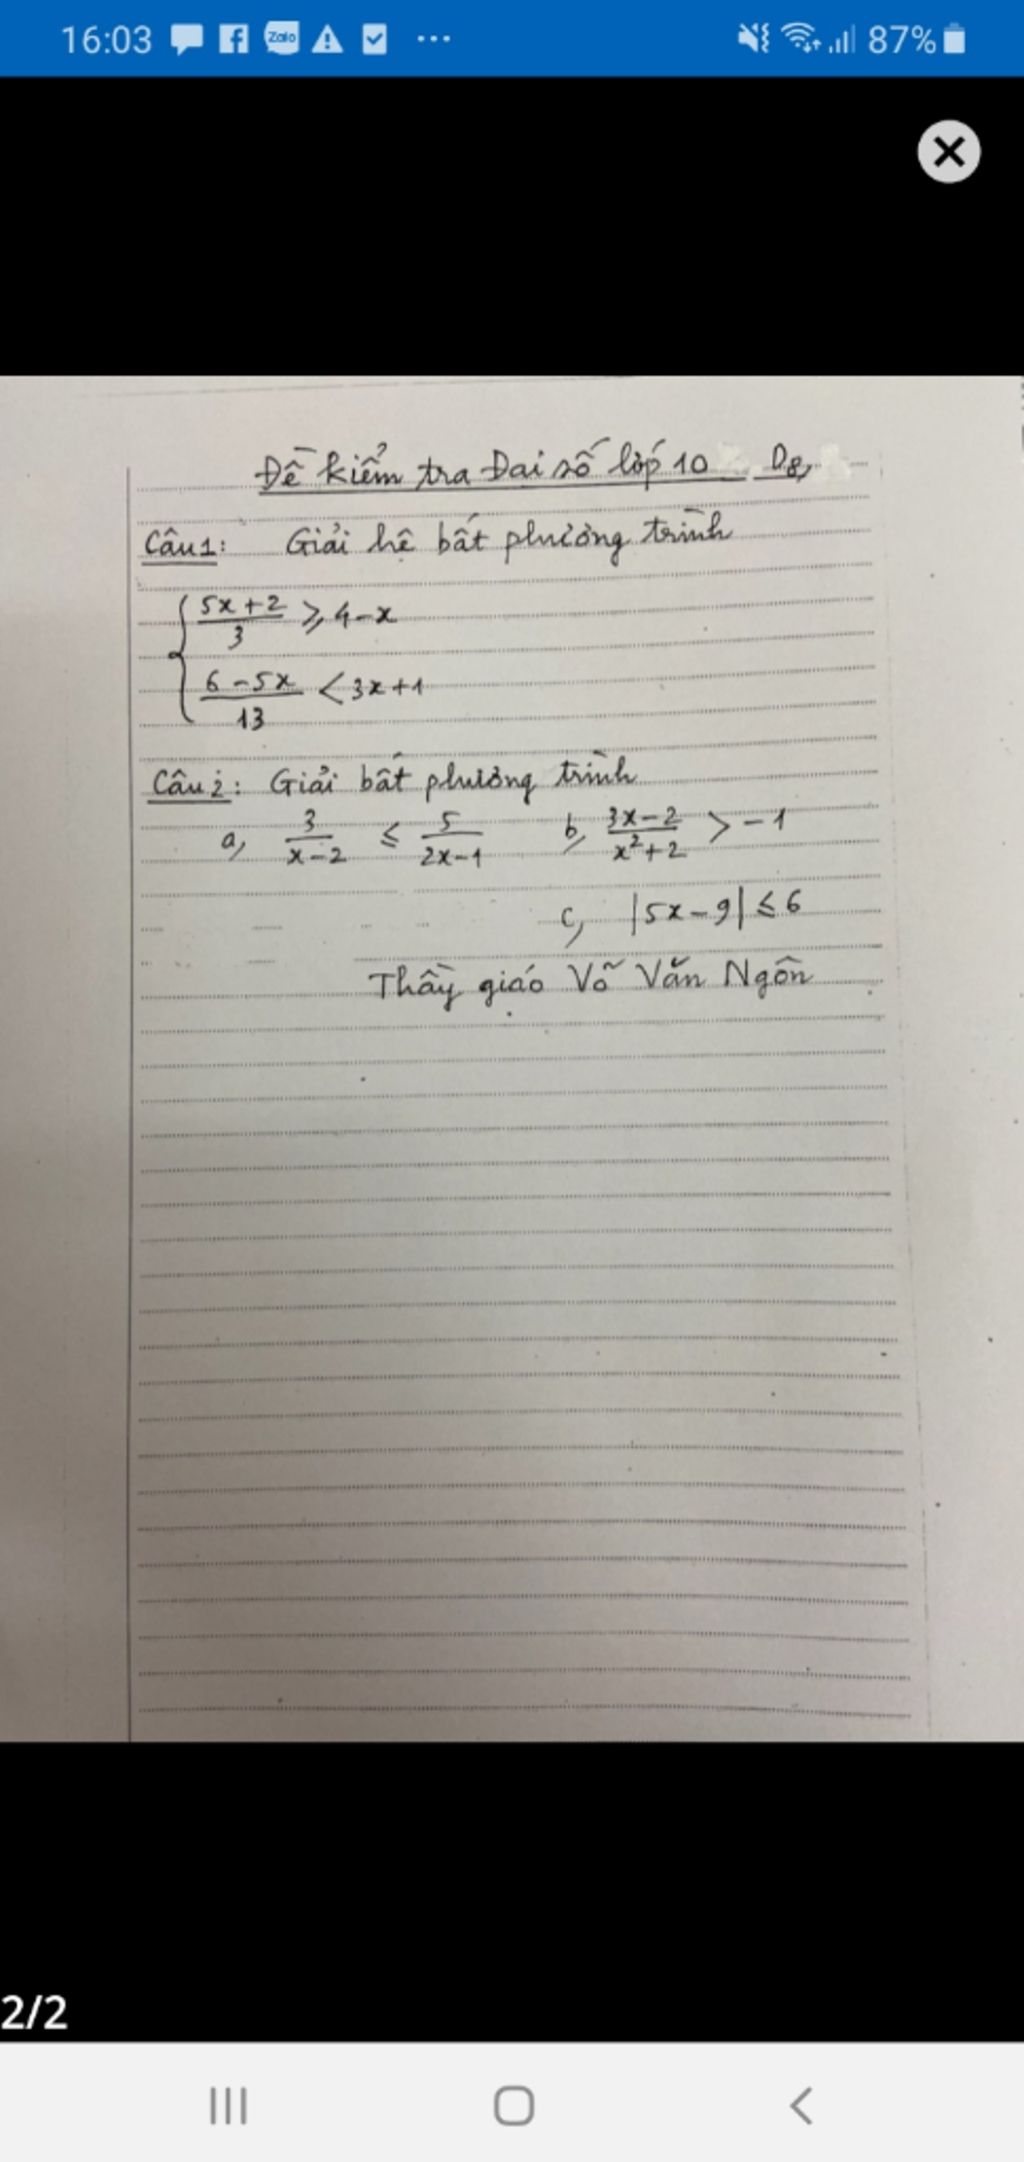 16:03 Zalo ... 87%
Đề kiểm tra Đai số lớp 10 D8,
Câu1: Giải hệ bất phương trình
5x+2/3 ≥ 4-x
6-5x/13 < 3x+1
Câu 2: Giải bất phương trình
a, 3/x-2 ≤ 5/2x-1 b, 3x-2/x²+2 > -1
c, |5x-9| ≤ 6
Thầy giáo Võ Văn Ngôn
2/2